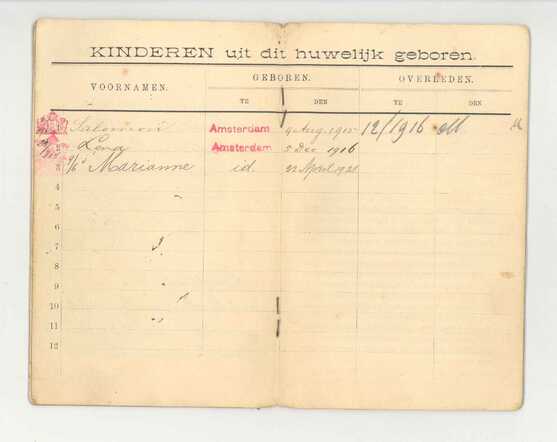 KINDEREN uit dit huwelijk geboren.
VOORNAMEN. GEBOREN. OVERLEDEN.
TE DEN TE DEN
Salomon Amsterdam 9 Aug. 1915 12/1916
2 Lena Amsterdam 5 Dec 1916
3 Marianne id. 22 April 1921
4
5
6
7
8
9
10
11
12